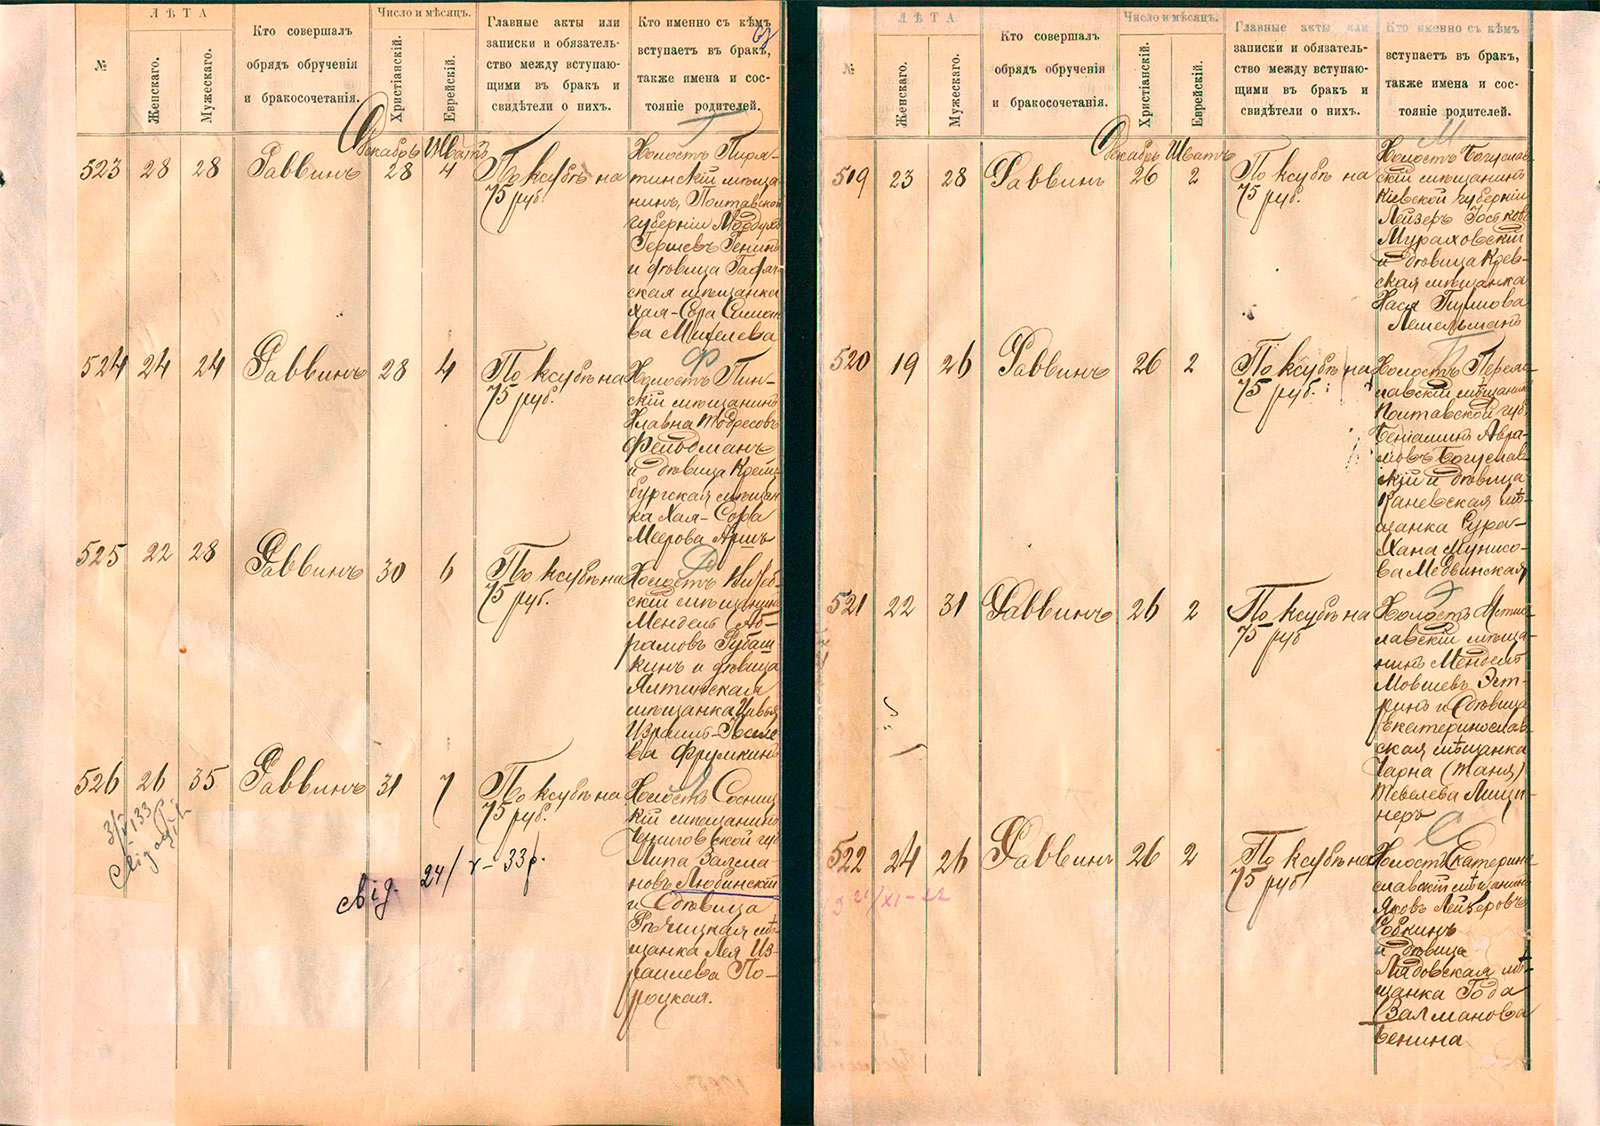 №
ЛѢТА
Женскаго.
Мужескаго.
Кто совершалъ
обрядъ обрученія
и бракосочетанія.
Число и мѣсяцъ.
Христіанскій.
Еврейскій.
Главные акты или
записки и обязатель-
ство между вступаю-
щими въ бракъ и
свидѣтели о нихъ.
Кто именно съ кѣмъ
вступаетъ въ бракъ,
также имена и сос-
тояніе родителей.
Декабрь Шватъ
523 28 28 Раввинъ 28 4 По ксубѣ на
75 руб.
Холостъ Пиря-
тинскій мѣща-
нинъ, Полтавской
губерніи Мордухъ
Гершевъ Генинъ
и дѣвица
ская мѣщанка
Хая-Сора
ва
524 24 24 Раввинъ 28 4 По ксубѣ на
75 руб.
Ф
Холостъ Пин-
скій мѣщанинъ
Тодресовъ
Фельдманъ
и дѣвица Крейц
бургская мѣщан
ка Хая-Сора
Меерова
525 22 28 Раввинъ 30 6 По ксубѣ на
75 руб.
Холостъ
скій мѣщанинъ
Мендель Аб-
рамовъ Рубаш
кинъ и дѣвица
Ялтинская
мѣщанка Цивья
Израиль-
ва Фрумкинъ
526 26 35 Раввинъ 31 7 По ксубѣ на
75 руб.
Холостъ Сосниц
кій мѣщанинъ
Черниговской гу
Липа Залма-
новъ Любинскій
и дѣвица
Рѣчицкая мѣ-
щанка Лея Из-
раилева По-
роцкая.
24/V-33р.
№
ЛѢТА.
Женскаго.
Мужескаго.
Кто совершалъ
обрядъ обрученія
и бракосочетанія.
Число и мѣсяцъ.
Христіанскій.
Еврейскій.
Главные акты или
записки и обязатель-
ство между вступаю-
щими въ бракъ и
свидѣтели о нихъ.
Кто именно съ кѣмъ
вступаетъ въ бракъ,
также имена и сос-
тояніе родителей.
Декабрь Шватъ
М
519 23 28 Раввинъ 26 2 По ксубѣ на
75 руб.
Холостъ Богуслав-
скій мѣщанинъ
Кіевской губерніи
Лейзеръ Іоськовъ
Мураховскій
и дѣвица Кіев-
ская мѣщанка
Хася
520 19 26 Раввинъ 26 2 По ксубѣ на
75 руб.
Холостъ Переяс-
лавскій мѣщанинъ
Полтавской губ.
Беніаминъ Авра-
мовъ Богуслав-
скій и дѣвица
Каневская мѣ-
щанка Сура-
Хана
ва Медвинская
521 22 31 Раввинъ 26 2 По ксубѣ на
75 руб
Э
Холостъ Мстис-
лавскій мѣща-
нинъ Мендель
Мовшевъ Эст-
ринъ и дѣвица
Екатеринослав-
ская мѣщанка
Чарна
Тевелева
неръ
522 24 26 Раввинъ 26 2 По ксубѣ на
75 руб
С
Холостъ Екатерино
славскій мѣщанинъ
Яковъ Лейзеровъ
и дѣвица
мѣ-
щанка Года
Залманова
Бенина
21/XI-22